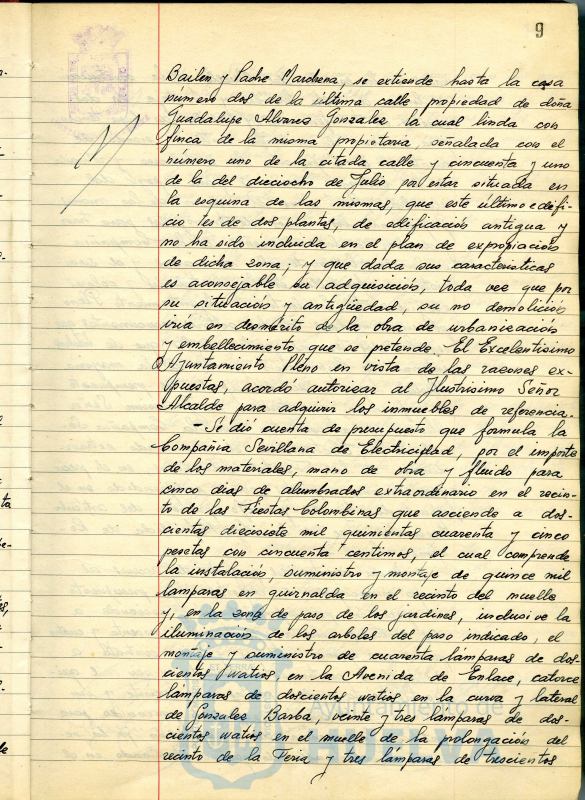 9
Bailen y Padre Marchena, se extiende hasta la casa
número dos de la última calle propiedad de doña
Guadalupe Alvarez Gonzalez la cual linda con
finca de la misma propietaria, señalada con el
número uno de la citada calle y cincuenta y uno
de la del dieciocho de Julio por estar situada en
la esquina de las mismas, que este último edifi-
cio es de dos plantas, de edificación antigua y
no ha sido incluida en el plan de expropiación
de dicha zona; y que dada sus caracteristicas
es aconsejable su adquisición, toda vez que por
su situación y antigüedad, su no demolición
iría en desmérito de la obra de urbanización
y embellecimiento que se pretende. El Excelentisimo
Ayuntamiento Pleno en vista de las razones ex-
puestas, acordó autorizar al Ilustrisimo Señor
Alcalde para adquirir los inmuebles de referencia.
- Se dió cuenta de presupuesto que formula la
Compañia Sevillana de Electricidad, por el importe
de los materiales, mano de obra y fluido para
cinco dias de alumbrados extraordinario en el recin-
to de las Fiestas Colombinas que asciende a dos-
cientas diecisiete mil quinientas cuarenta y cinco
pesetas con cincuenta centimos, el cual comprende
la instalación, suministro y montaje de quince mil
lamparas en guirnalda en el recinto del muelle
y, en la zona de paso de los jardines, inclusive la
iluminación de los arboles del paso indicado, el
montaje y suministro de cuarenta lámparas de dos-
cientos watios, en la Avenida de Enlace, catorce
lamparas de doscientos watios en la curva y lateral
de Gonzalez Barba, veinte y tres lámparas de dos-
cientos watios en el muelle de la prolongación del
recinto de la Feria y tres lámparas de trescientos
Ayuntamiento de